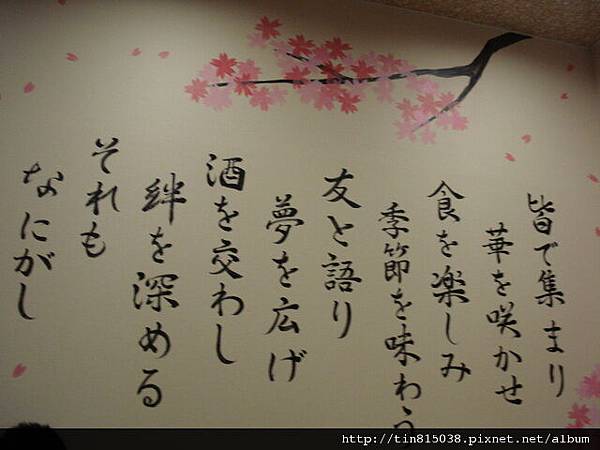 皆で集まり
華を咲かせ
食を楽しみ
季節を味わう
友と語り
夢を広げ
酒を交わし
絆を深める
それも
なにがし
http://tin815038.pixnet.net/album